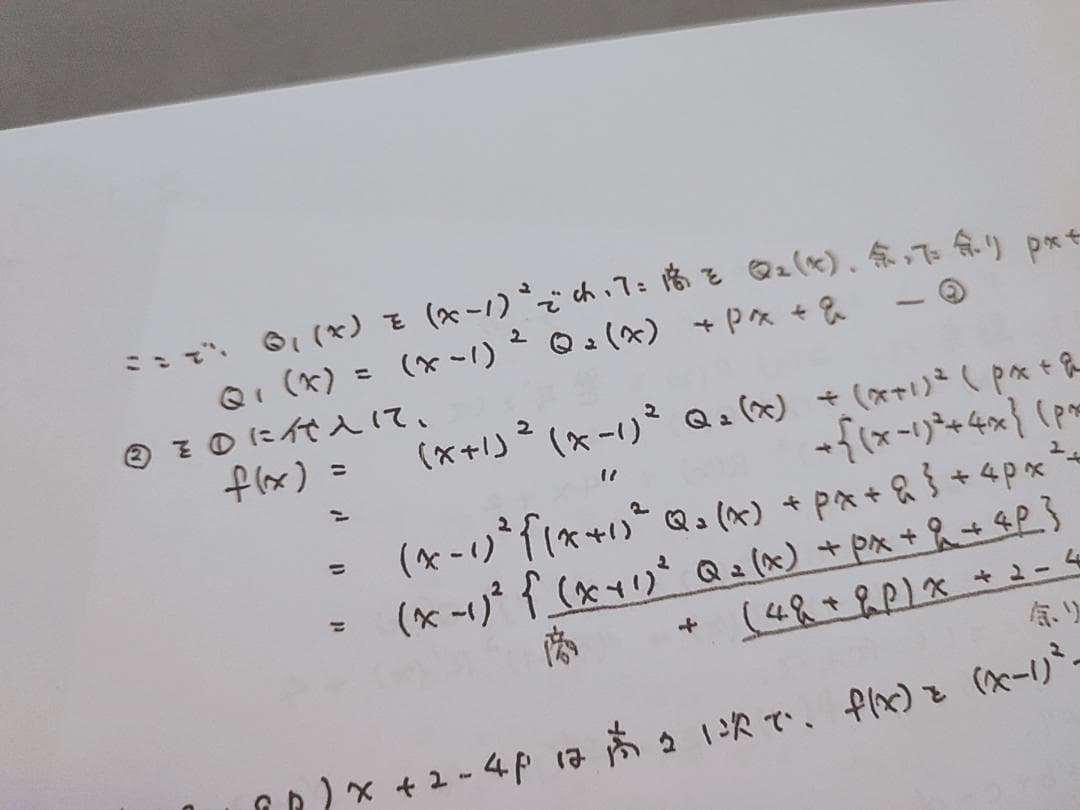 ここで、Q₁(x)を(x-1)²でわった商をQ₂(x)、余った余り px+
Q₁(x) = (x-1)² Q₂(x) + px + q —②
②を①に代入して、
f(x) = (x+1)² (x-1)² Q₂(x) + (x+1)² (px+q
= 〃 +{(x-1)²+4x}(px
= (x-1)²{(x+1)² Q₂(x) + px + q} + 4px²+
= (x-1)²{(x+1)² Q₂(x) + px + q + 4p}
商 + (4q+8p)x + 2-4
余り
8p)x + 2-4p は高々1次で、f(x)を(x-1)²